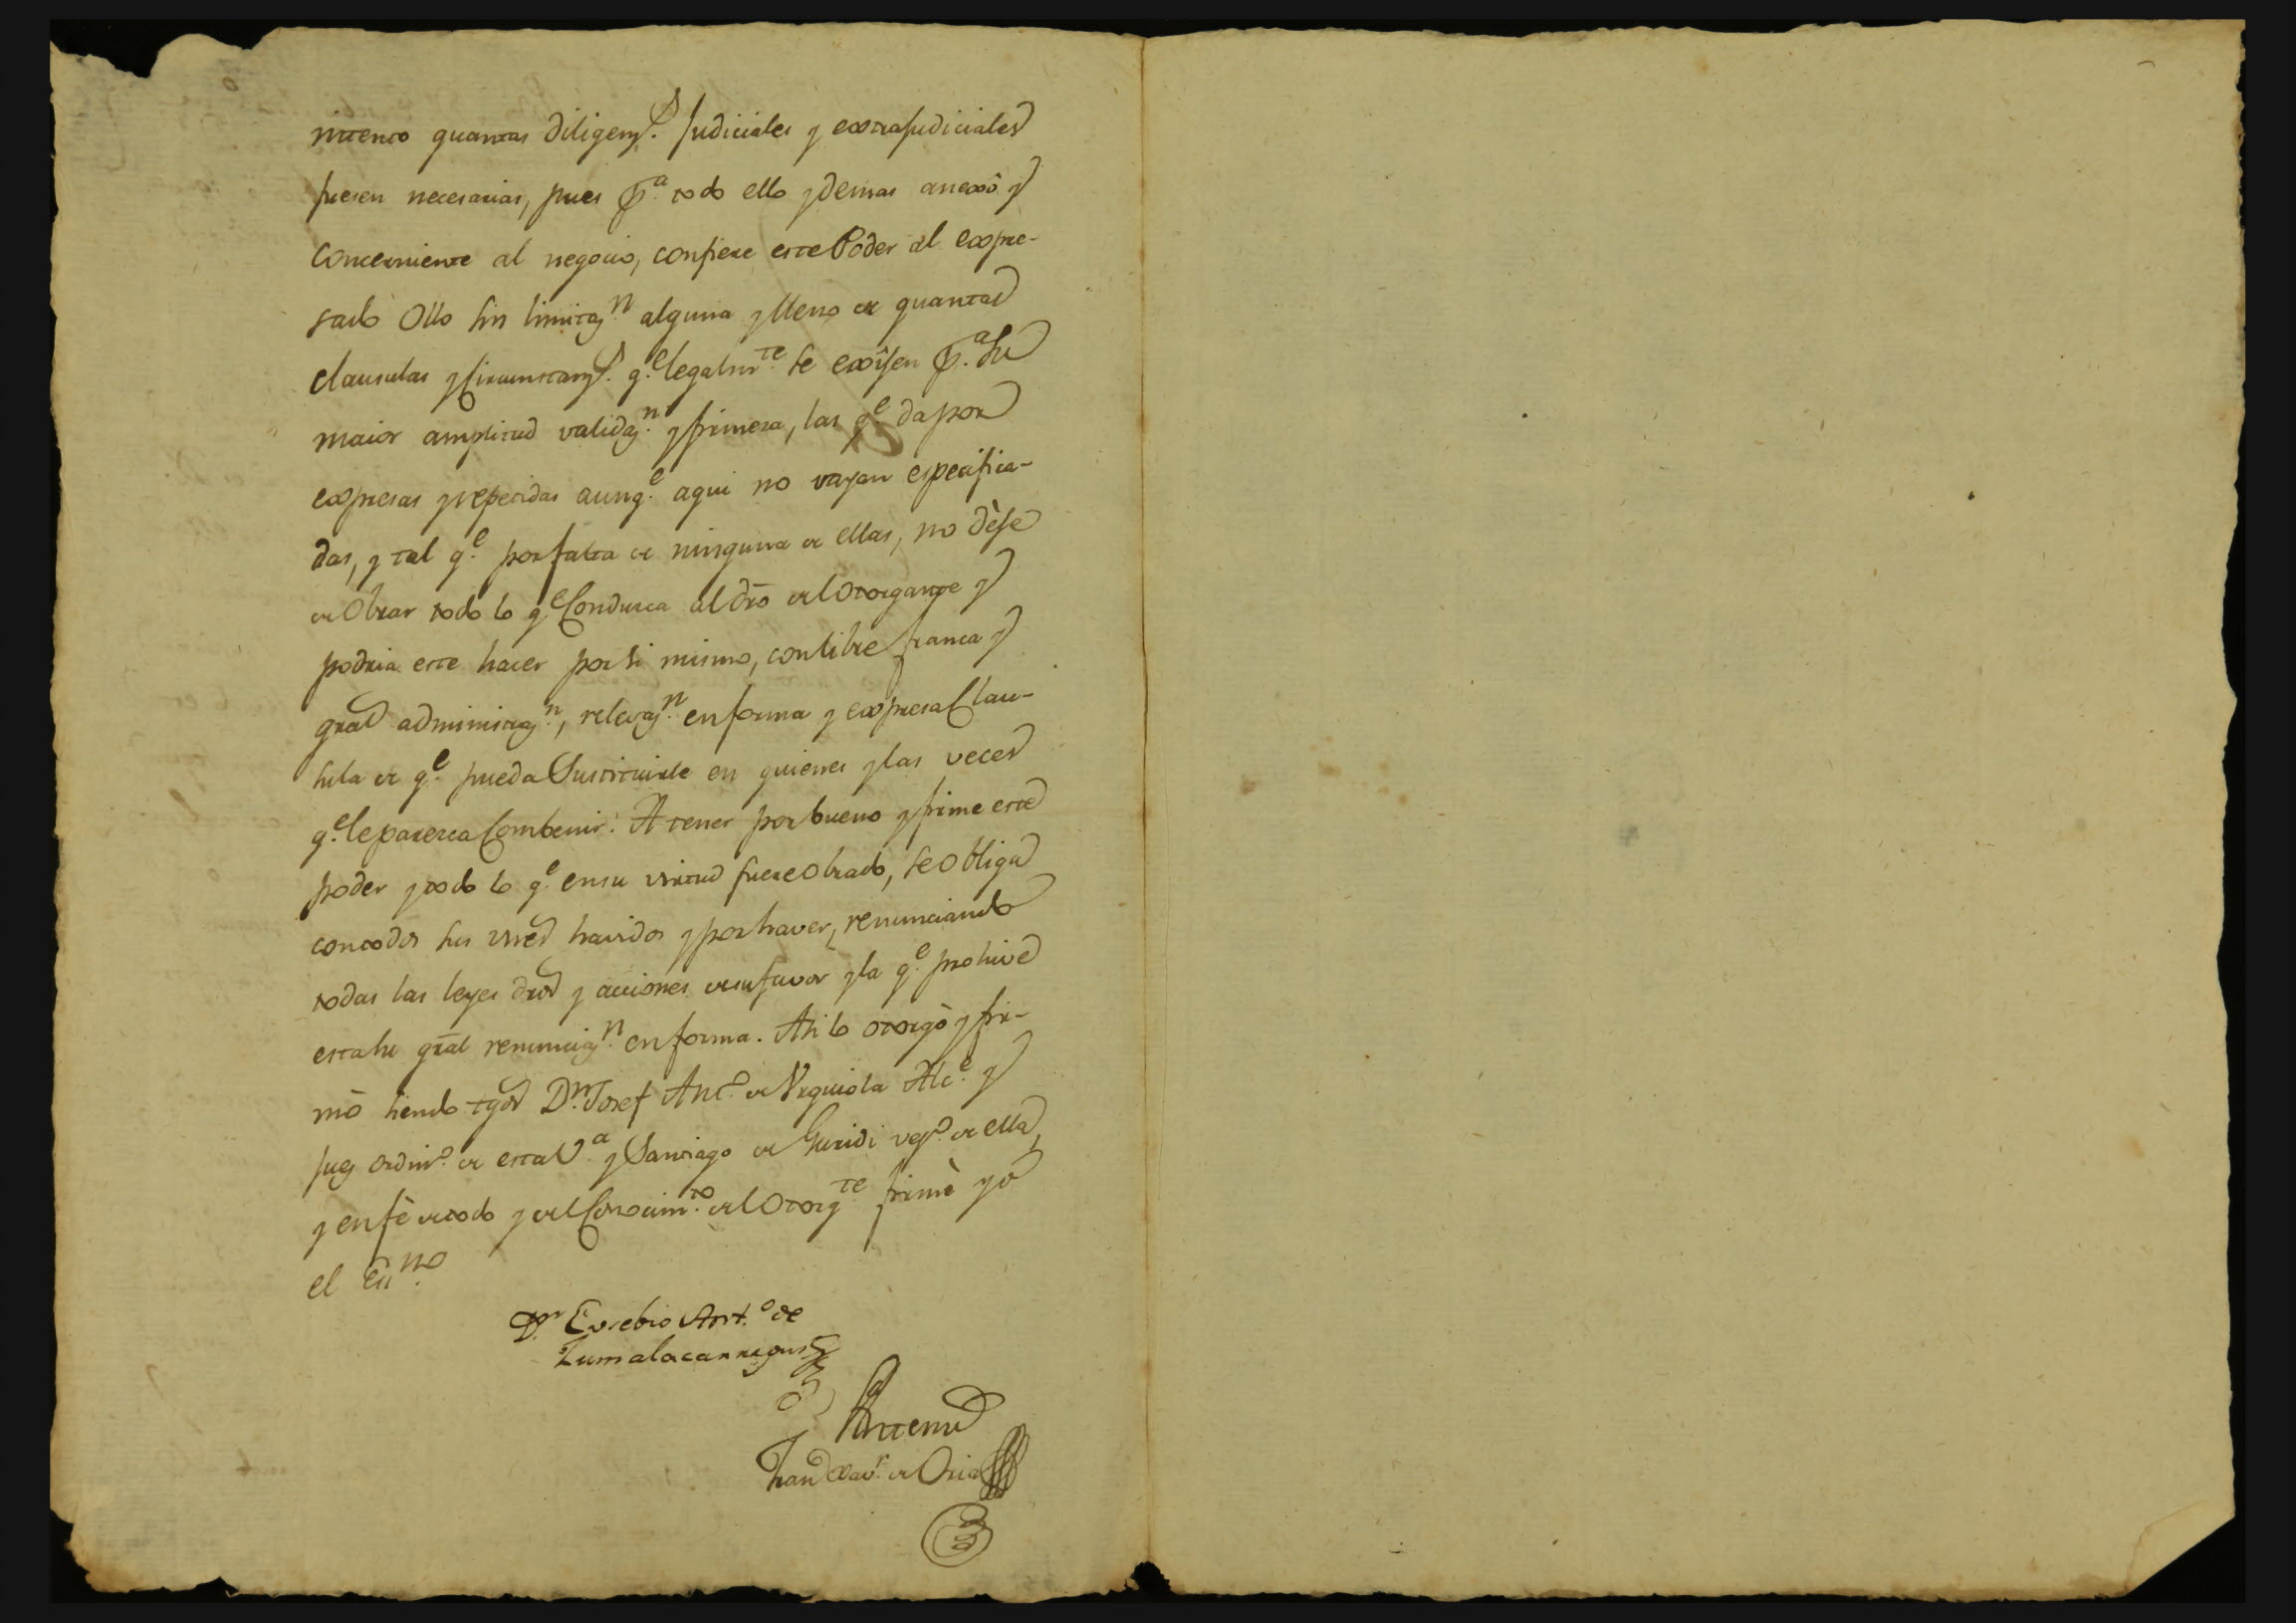 mitento quantas diligenz.s Judiciales y extrajudiciales
fuesen necesarias, pues p.a todo ello y demas anexô y
Concerniente al negocio, confiere este Poder al expre-
sado Ollo sin limitaz.n alguna y lleno de quantas
clausulas y Circunstanz.s q.e legalm.te se exîjen p.a su
maior amplitud validaz.n y firmeza, las q.e da por
expresas y repetidas aunq.e aqui no vayan especifica-
das, y tal q.e por falta de ninguna de ellas, no dèje
de Obrar todo lo q.e Conduzca al dr̃o del Otorgante y
podria este hacer por si mismo, con libre franca y
gral administraz.n, relevaz.n en forma y expresa Clau-
sula de q.e pueda Sustituirle en quienes y las veces
q.e le parezca Combenir: A tener por bueno y firme este
poder y todo lo q.e en su virtud fuere Obrado, se Obliga
con todos sus vnes havidos y por haver, renunciando
todas las leyes dros y acciones de su favor y la q.e prohive
esta su gr̃al renunciaz.n en forma. Asi lo otorgò y fir-
mò siendo tgos D.n Josef Ant.o de Urquiola Alc.e y
Juez ordin.o de esta V.a y Santiago de Guridi vez.o de ella,
y en fè de todo y del Conocim.to del Otorg.te firmè yo
el Ess.no
D.n Eusebio Ant.o de
Zumalacarregui
Antemi
Fran Xav.r de Oria